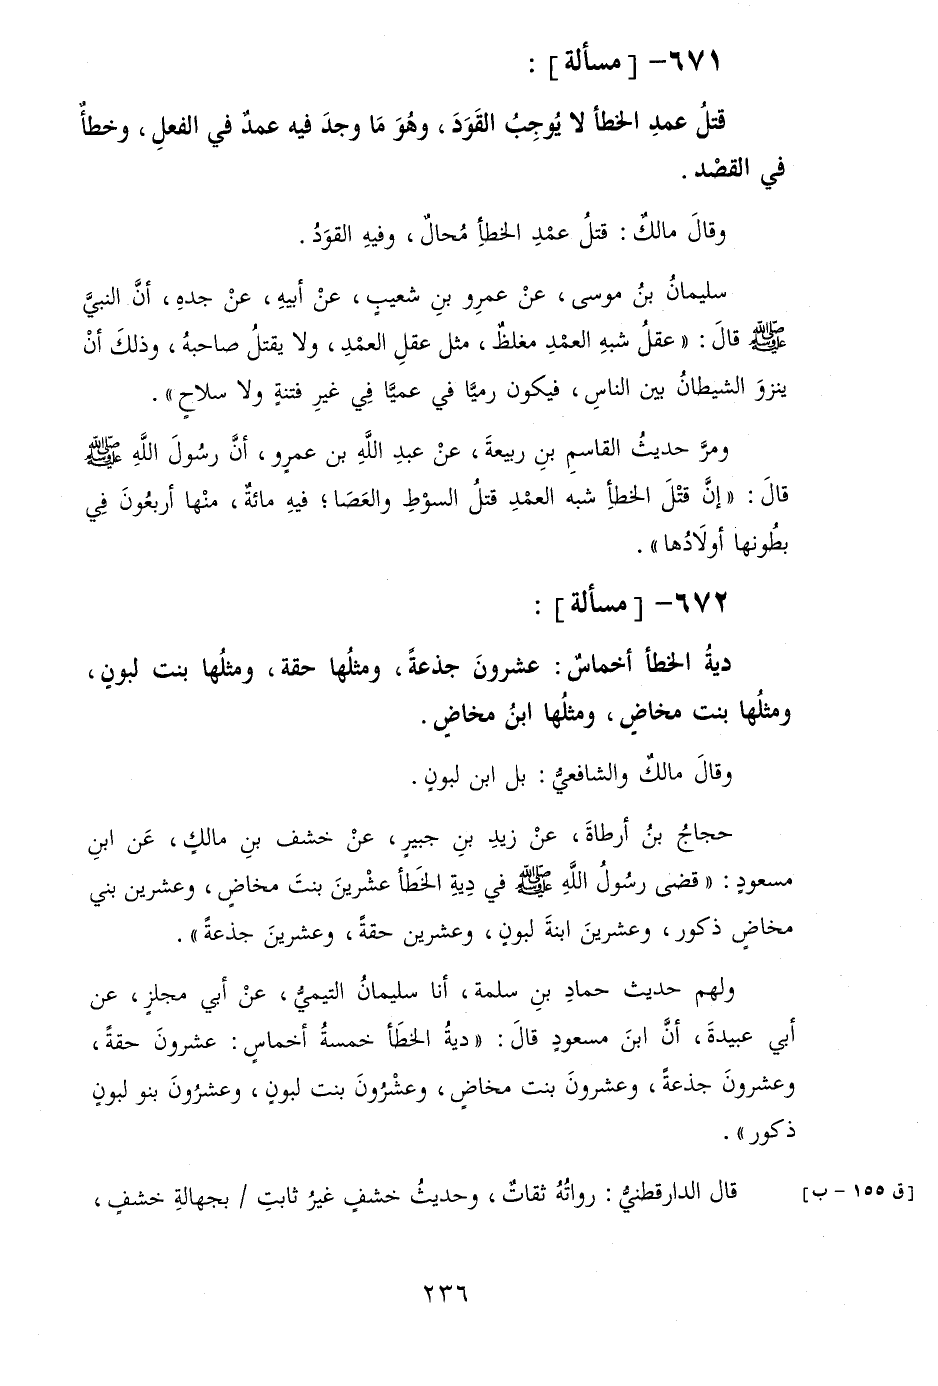 ٦٧١- [ مسألة ] :
قتلُ عمدِ الخطأ لا يُوجِبُ القَوَدَ ، وهُوَ مَا وجدَ فيه عمدٌ في الفعلِ ، وخطأٌ
في القصْد .
وقالَ مالكٌ : قتلُ عمْدِ الخطأِ مُحالٌ ، وفيهِ القوَدُ .
سليمانُ بنُ موسى ، عنْ عمرِو بنِ شعيبٍ ، عنْ أبيهِ ، عنْ جدهِ ، أنَّ النبيَّ
ﷺ قالَ : « عقلُ شبهِ العمْدِ مغلظٌ ، مثل عقلِ العمْدِ ، ولا يقتلُ صاحبهُ ، وذلكَ أنْ
ينزوَ الشيطانُ بين الناسِ ، فيكون رميًّا في عميًّا فِي غيرِ فتنةٍ ولا سلاحٍ » .
ومرَّ حديثُ القاسمِ بنِ ربيعةَ ، عنْ عبدِ اللَّهِ بن عمرٍو ، أنَّ رسُولَ اللَّهِ ﷺ
قالَ : « إنَّ قتْلَ الخطأِ شبه العمْدِ قتلُ السوْطِ والعَصَا ؛ فيهِ مائةٌ ، منْها أربعُونَ فِي
بطُونها أولَادُها » .
٦٧٢- [ مسألة ] :
ديةُ الخطأ أخماسٌ : عشرونَ جذعةً ، ومثلُها حقة ، ومثلُها بنت لبونٍ ،
ومثلُها بنت مخاضٍ ، ومثلُها ابنُ مخاضٍ .
وقالَ مالكٌ والشافعيُّ : بل ابن لبونٍ .
حجاجُ بنُ أرطاةَ ، عنْ زيدِ بنِ جبيرٍ ، عنْ خشف بنِ مالكٍ ، عَن ابنِ
مسعودٍ : « قضى رسُولُ اللَّهِ ﷺ في دِيةِ الخَطأ عشْرينَ بنتَ مخاضٍ ، وعشرين بني
مخاضٍ ذكور ، وعشرينَ ابنةَ لبونٍ ، وعشرين حقةً ، وعشرينَ جذعةً » .
ولهم حديث حمادِ بنِ سلمة ، أنا سليمانُ التيميُّ ، عنْ أبي مجلزٍ ، عن
أبي عبيدةَ ، أنَّ ابنَ مسعودٍ قالَ : « ديةُ الخطَأ خمسةُ أخماسٍ : عشرونَ حقةً ،
وعشرونَ جذعةً ، وعشرونَ بنت مخاضٍ ، وعشْرُونَ بنت لبونٍ ، وعشرُونَ بنو لبونٍ
ذكور » .
قال الدارقطنيُّ : رواتُهُ ثقاتٌ ، وحديثُ خشفٍ غيرُ ثابتِ / بجهالةِ خشفٍ ، [ق ١٥٥ - ب]
٢٣٦